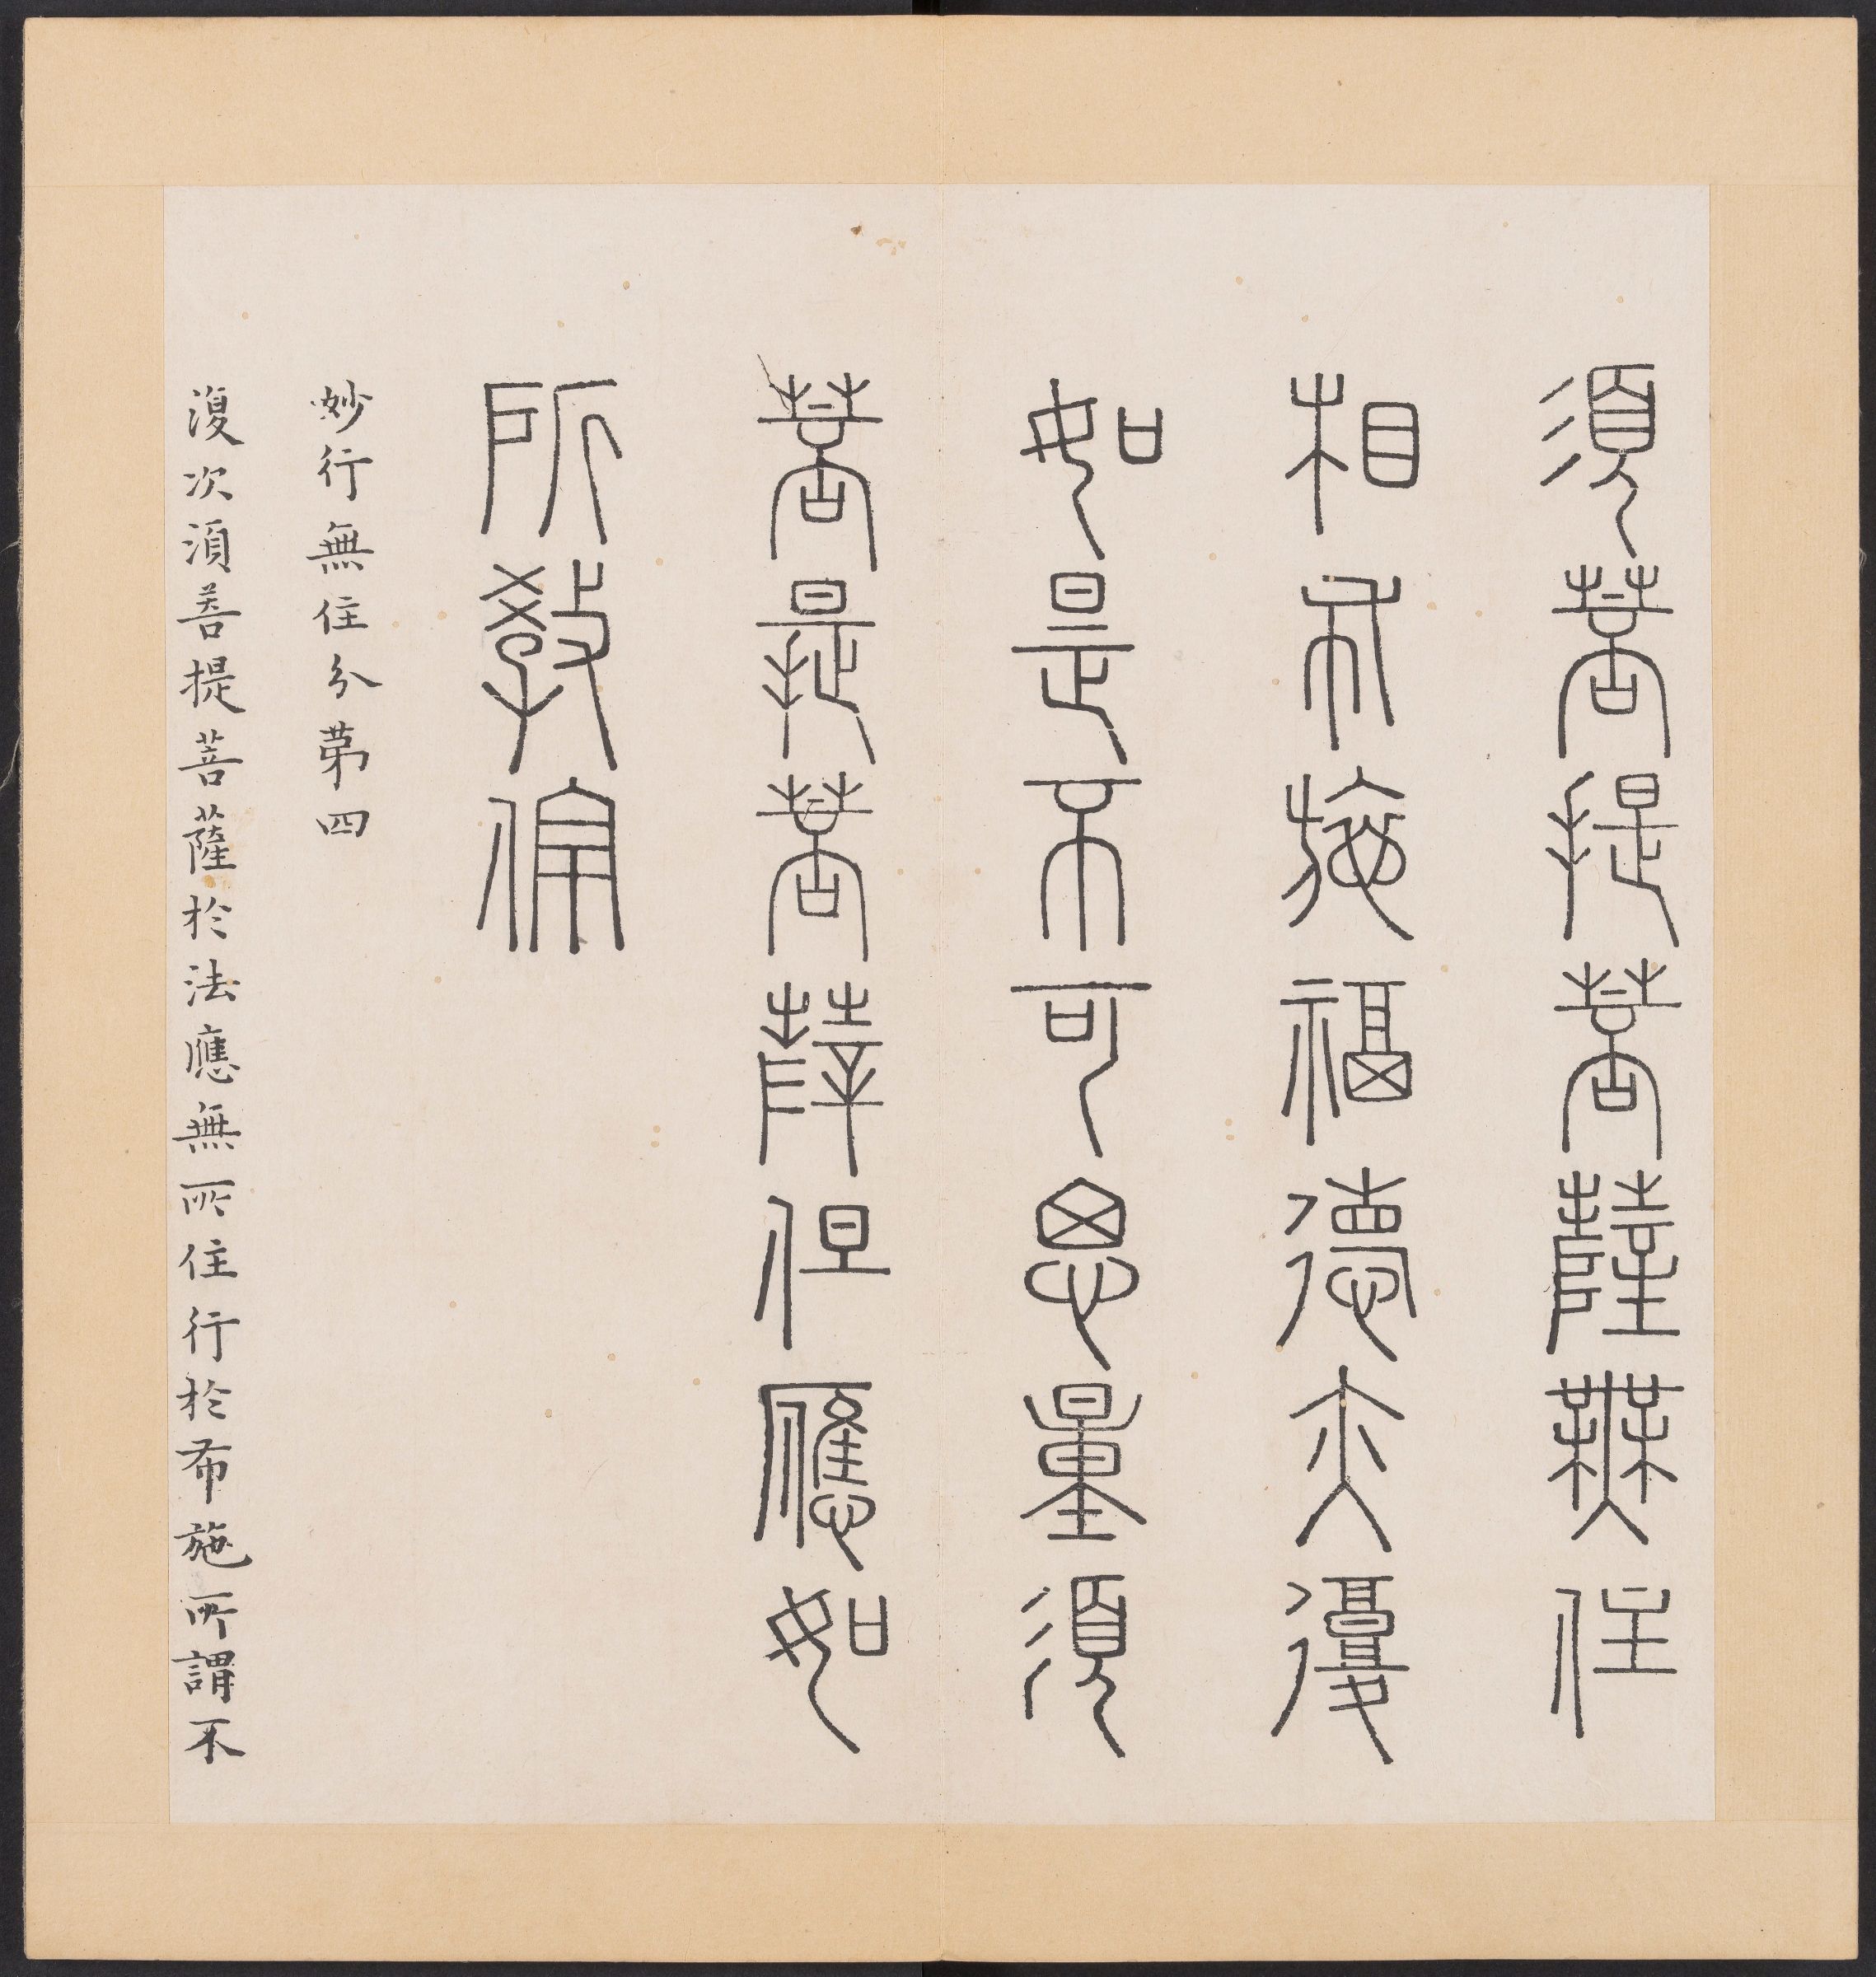 須菩提菩薩無住
相布施福德亦復
如是不可思量須
菩提菩薩但應如
所教倫
妙行無住分第四
復次須菩提菩薩於法應無所住行於布施所謂不